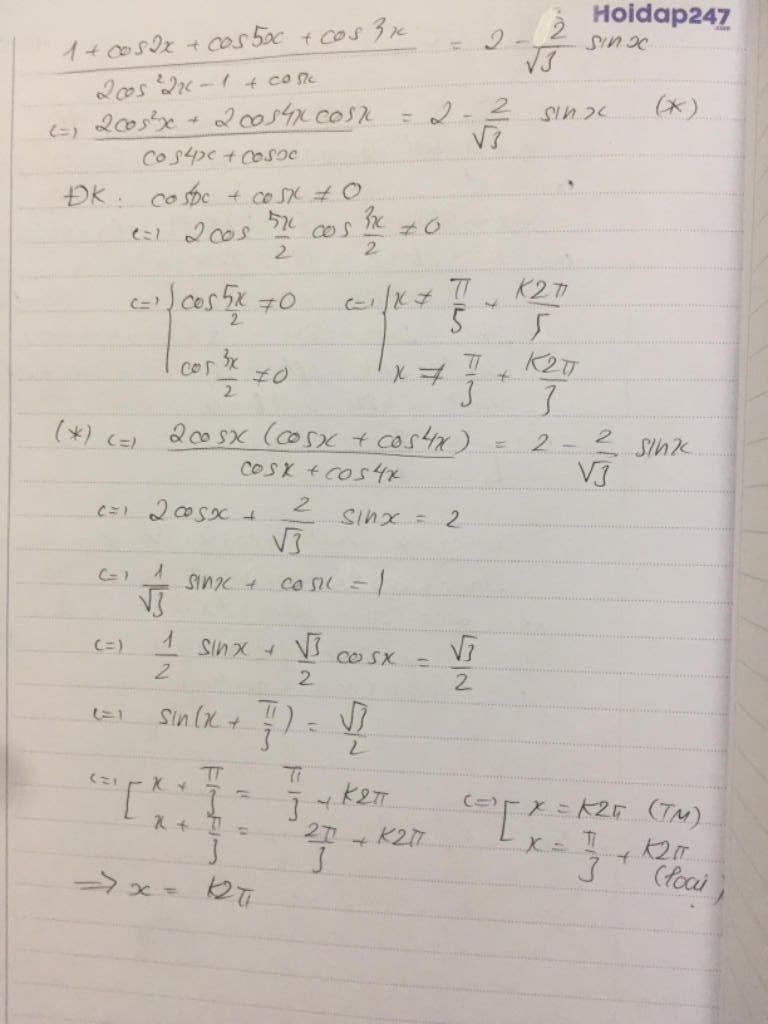 Hoidap247
.com
(1 + cos2x + cos5x + cos3x) / (2cos²2x - 1 + cosx) = 2 - 2/√3 sinx
<=> (2cos²x + 2cos4x cosx) / (cos4x + cosx) = 2 - 2/√3 sinx (*)
ĐK: cos4x + cosx ≠ 0
<=> 2cos 5x/2 cos 3x/2 ≠ 0
<=> { cos 5x/2 ≠ 0 <=> { x ≠ π/5 + K2π/5
cos 3x/2 ≠ 0 x ≠ π/3 + K2π/3
(*) <=> 2cosx (cosx + cos4x) / (cosx + cos4x) = 2 - 2/√3 sinx
<=> 2cosx + 2/√3 sinx = 2
<=> 1/√3 sinx + cosx = 1
<=> 1/2 sinx + √3/2 cosx = √3/2
<=> sin(x + π/3) = √3/2
<=> [ x + π/3 = π/3 + K2π <=> [ x = K2π (TM)
x + π/3 = 2π/3 + K2π x = π/3 + K2π (loại)
=> x = K2π